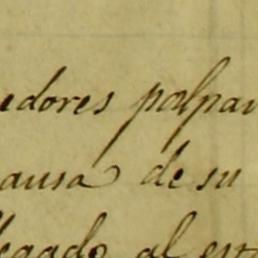 edores palpar
ausa de su
legado al est